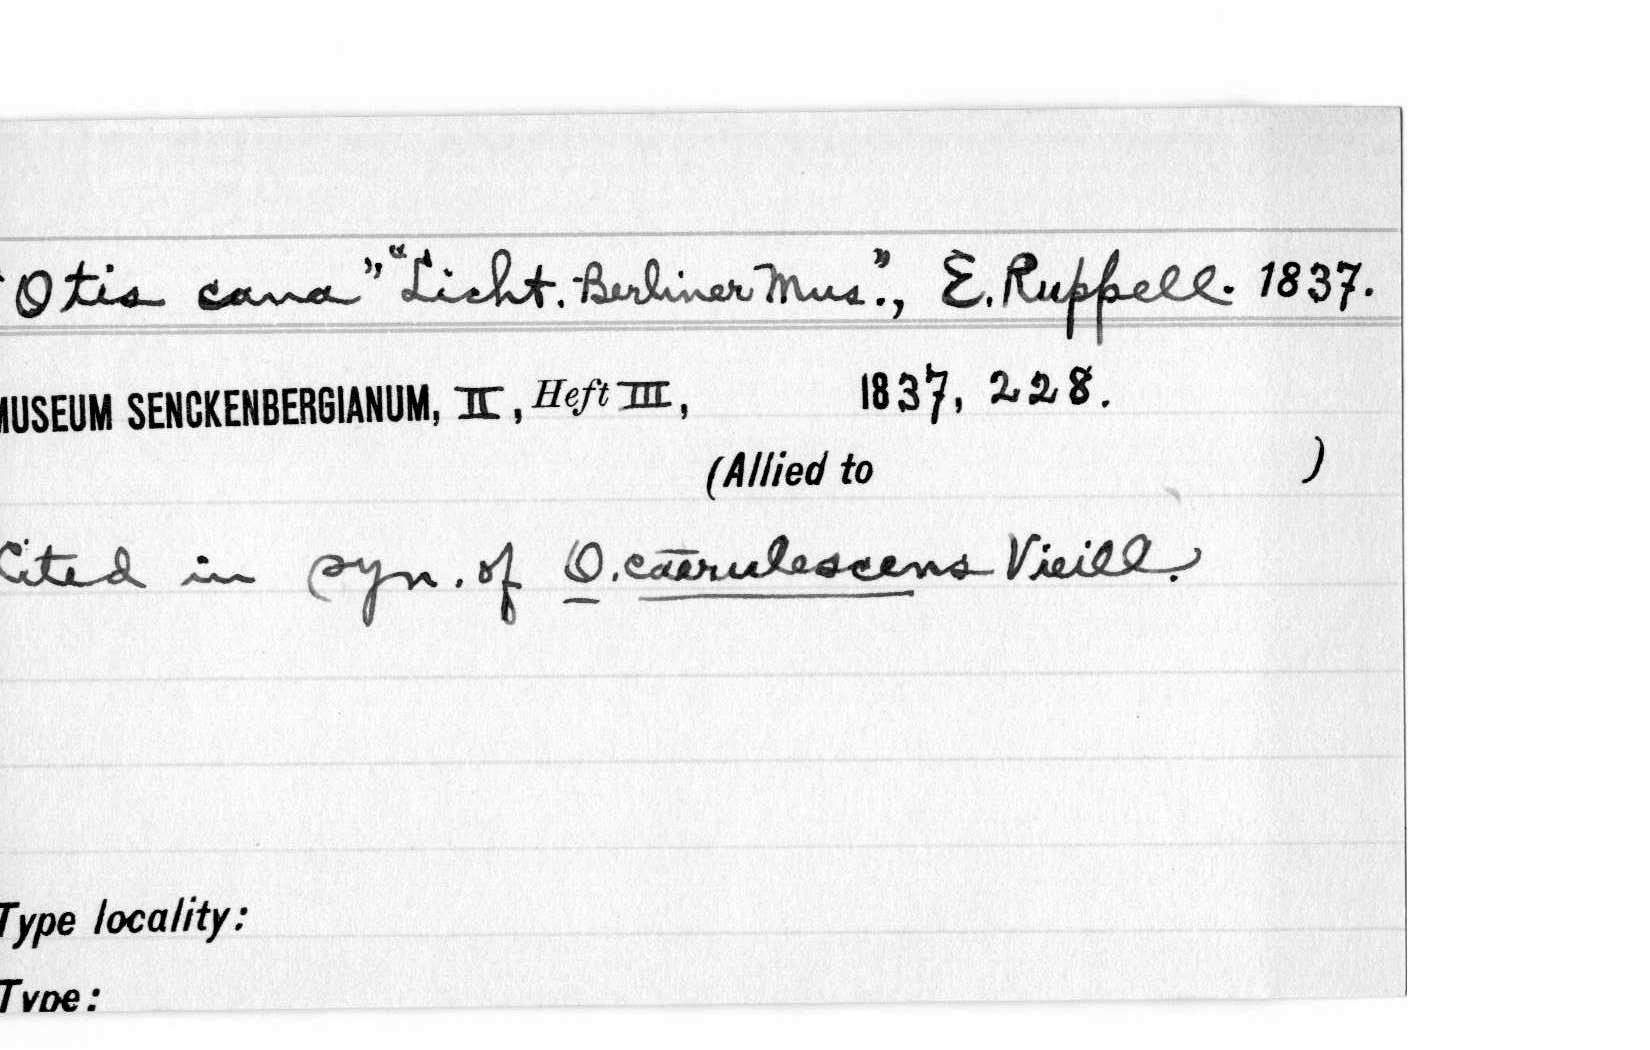 "Otis cana" "Licht. Berliner Mus.", E. Ruppell. 1837.
MUSEUM SENCKENBERGIANUM, II, Heft III, 1837, 228.
(Allied to )
Cited in syn. of O. caerulescens Vieill.
Type locality:
Type: